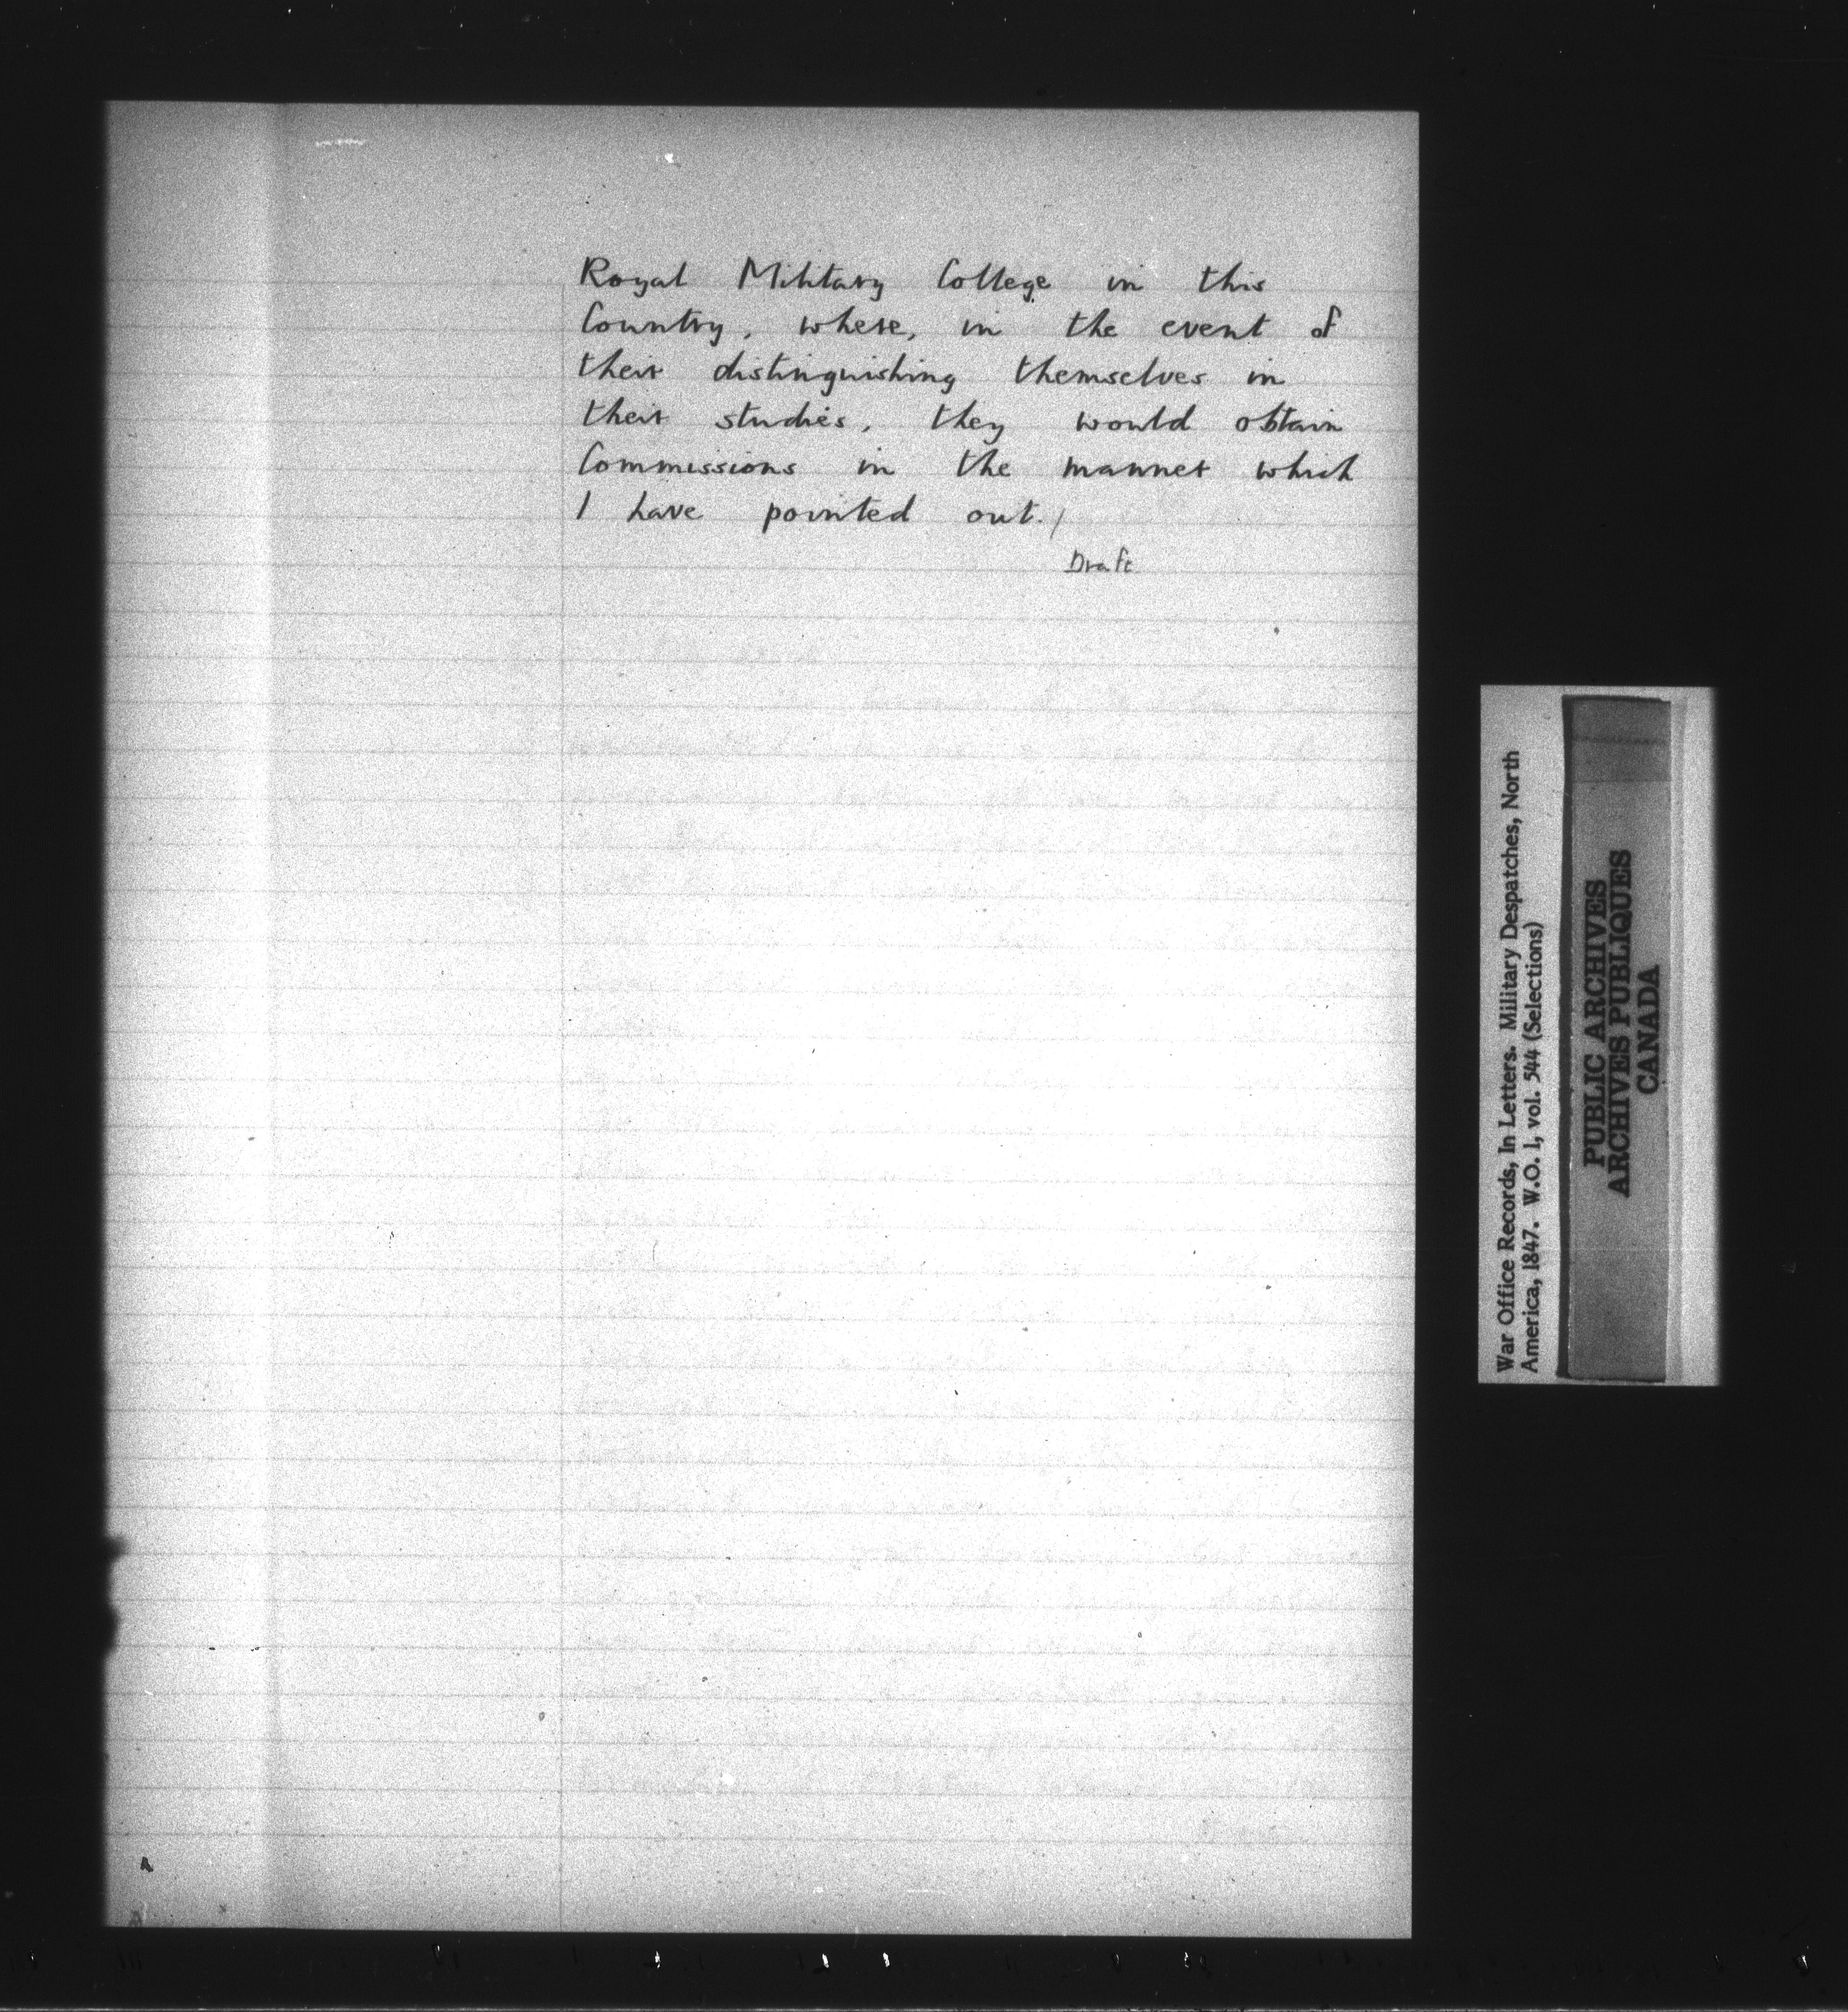 Royal Military College in this
Country, where, in the event of
their distinguishing themselves in
their studies, they would obtain
Commissions in the manner which
I have pointed out./
Draft
War Office Records, In Letters. Military Despatches, North
America, 1847. W.O. 1, vol. 544 (Selections)
PUBLIC ARCHIVES
ARCHIVES PUBLIQUES
CANADA